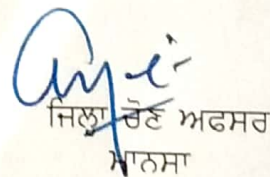 ਜਿਲ੍ਹਾ ਚੋਣ ਅਫਸਰ
ਮਾਨਸਾ